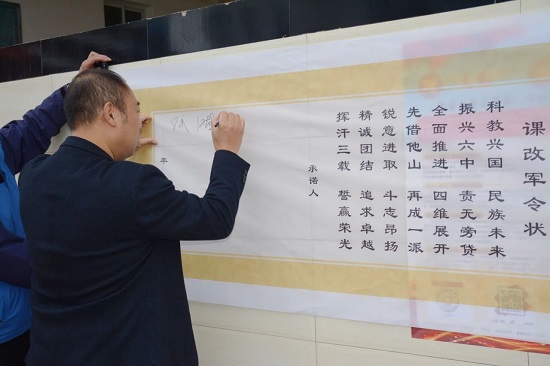 课改军令状
科教兴国 民族未来
振兴六中 责无旁贷
全面推进 四维展开
先借他山 再成一派
锐意进取 斗志昂扬
精诚团结 追求卓越
挥汗三载 誓赢荣光
承诺人
年